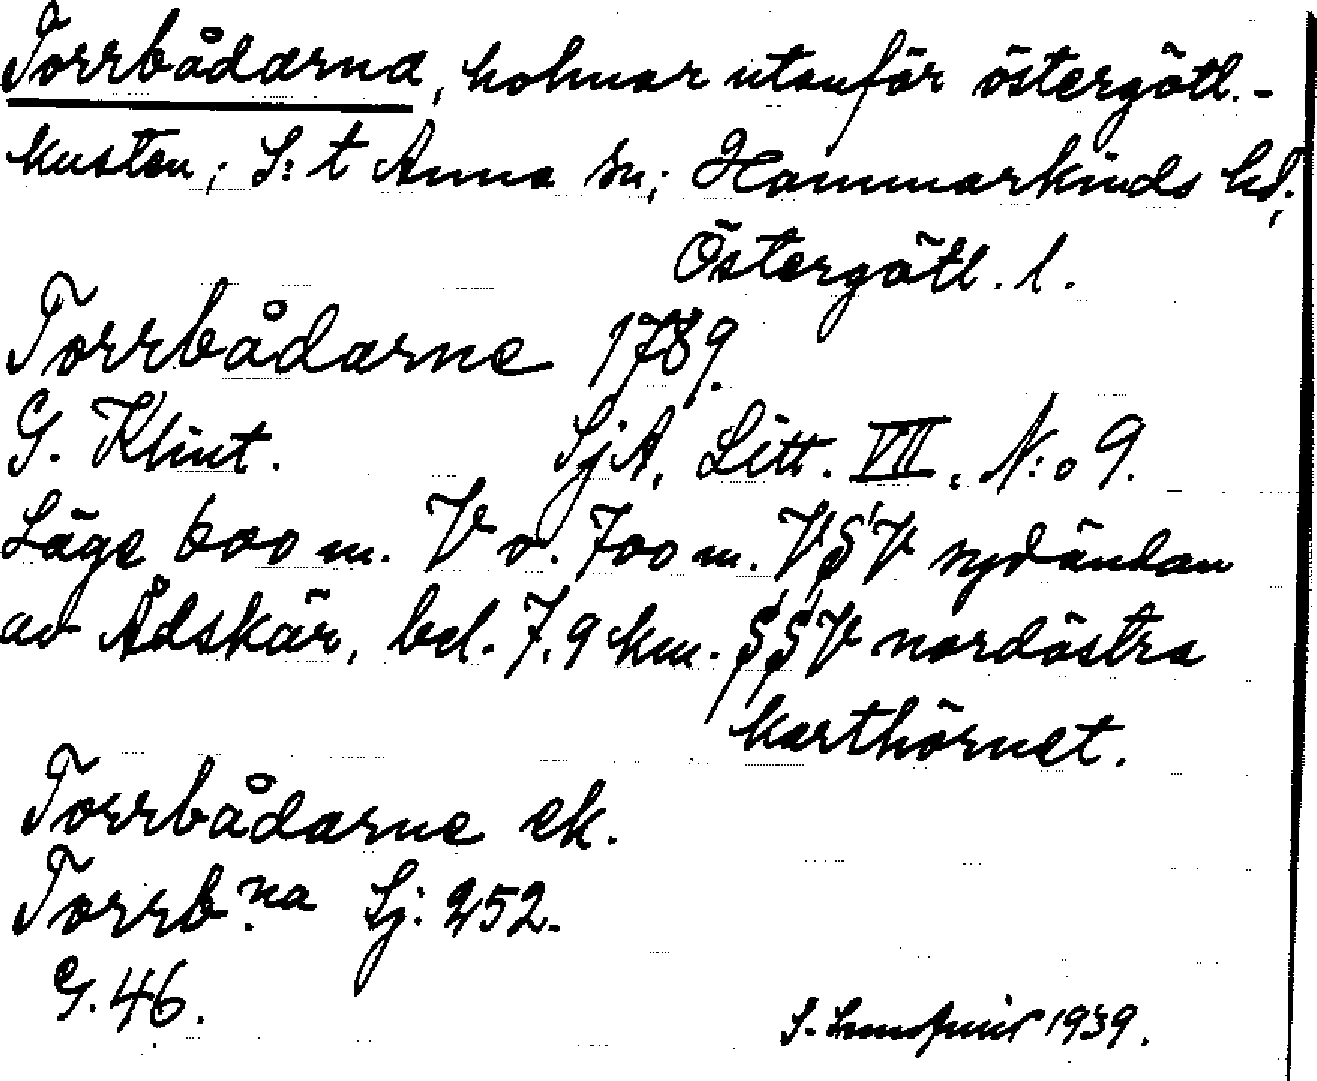 Torrbådarna, holmar utanför östergötl.-
kusten; S:t Anna sn; Hammarkinds hd;
Östergötl. l.
Torrbådarne 1789.
G. Klint. SjA, Litt. VII. N:o 9.
Läge 600 m. V o. 700 m. VSV sydändan
av Ådskär, bel. 7,9 km. SSV nordöstra
karthörnet.
Torrbådarne ek.
Torrb.na Sj: 252.
G. 46.
S. 1939.